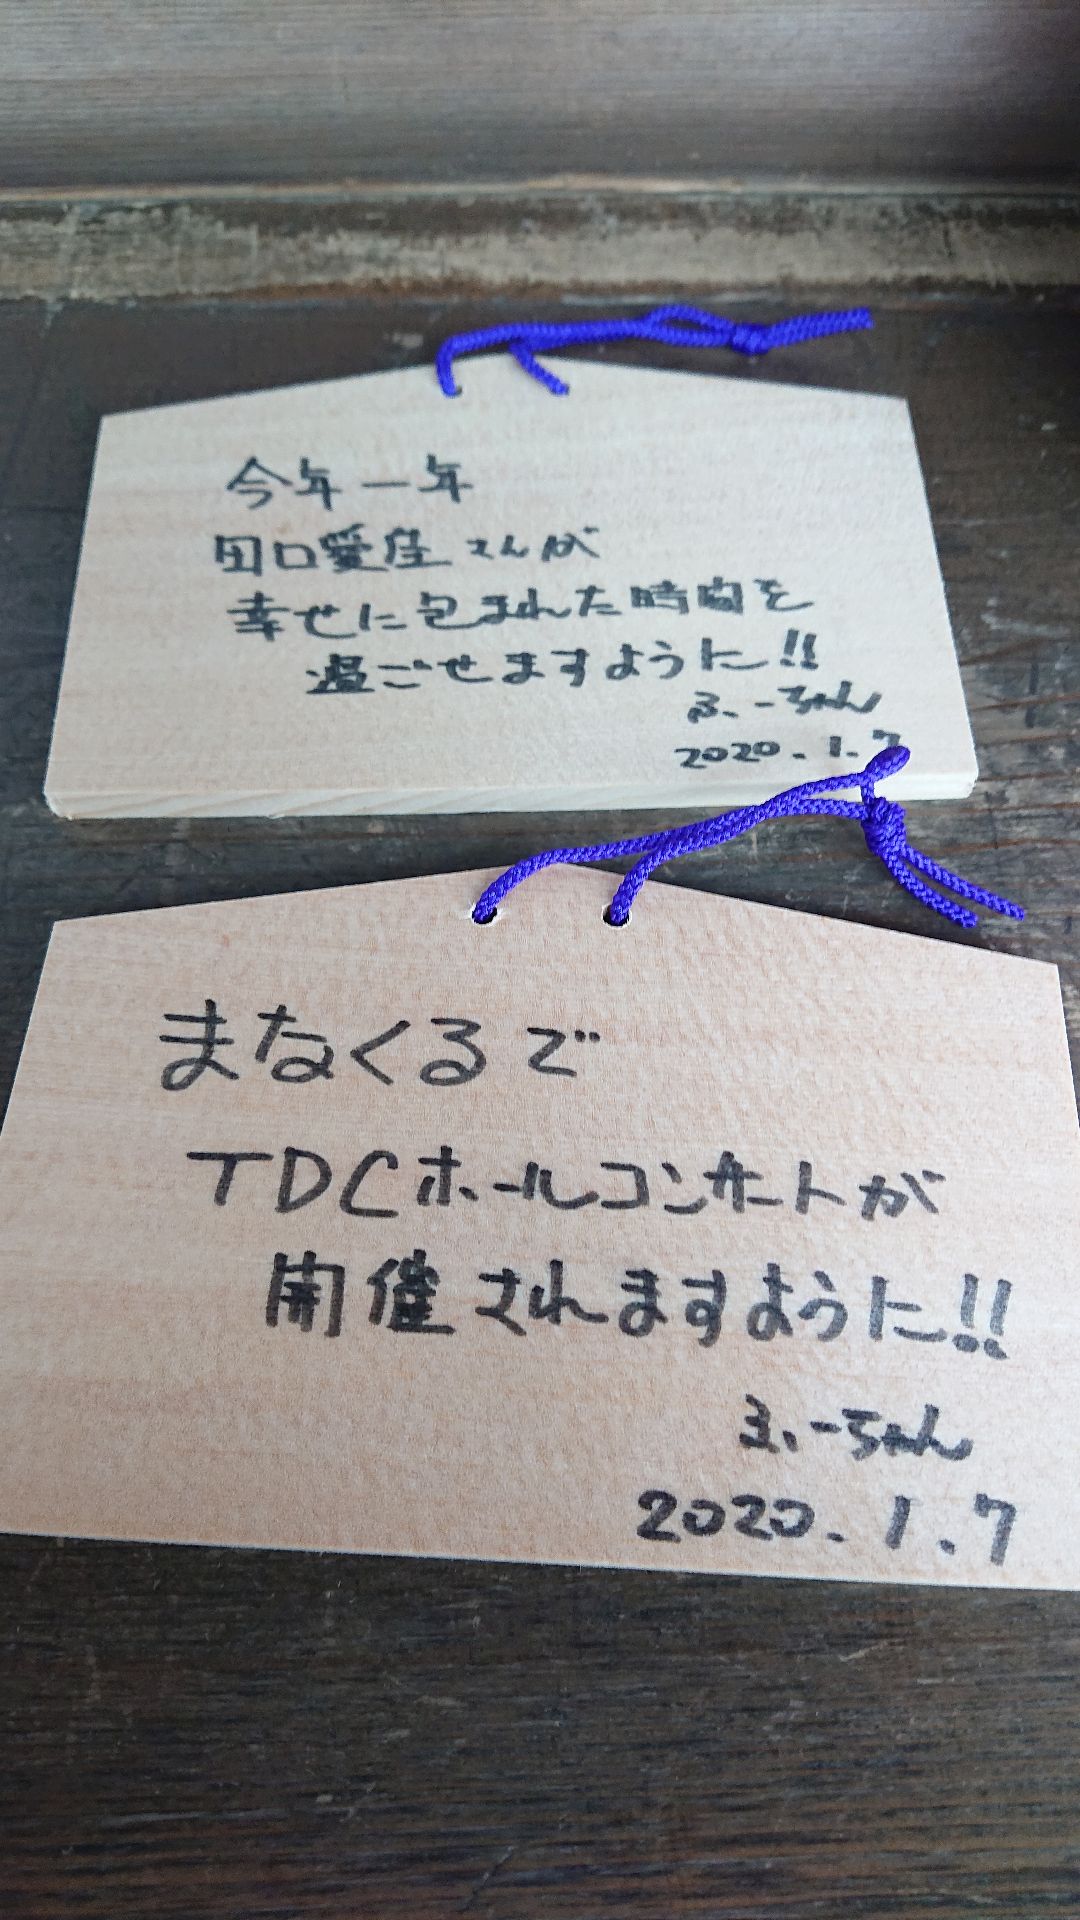 今年一年
田口愛佳さんが
幸せに包まれた時間を
過ごせますように!!
ふぃーちゃん
2020.1.7
まなくるで
TDCホールコンサートが
開催されますように!!
ふぃーちゃん
2020.1.7